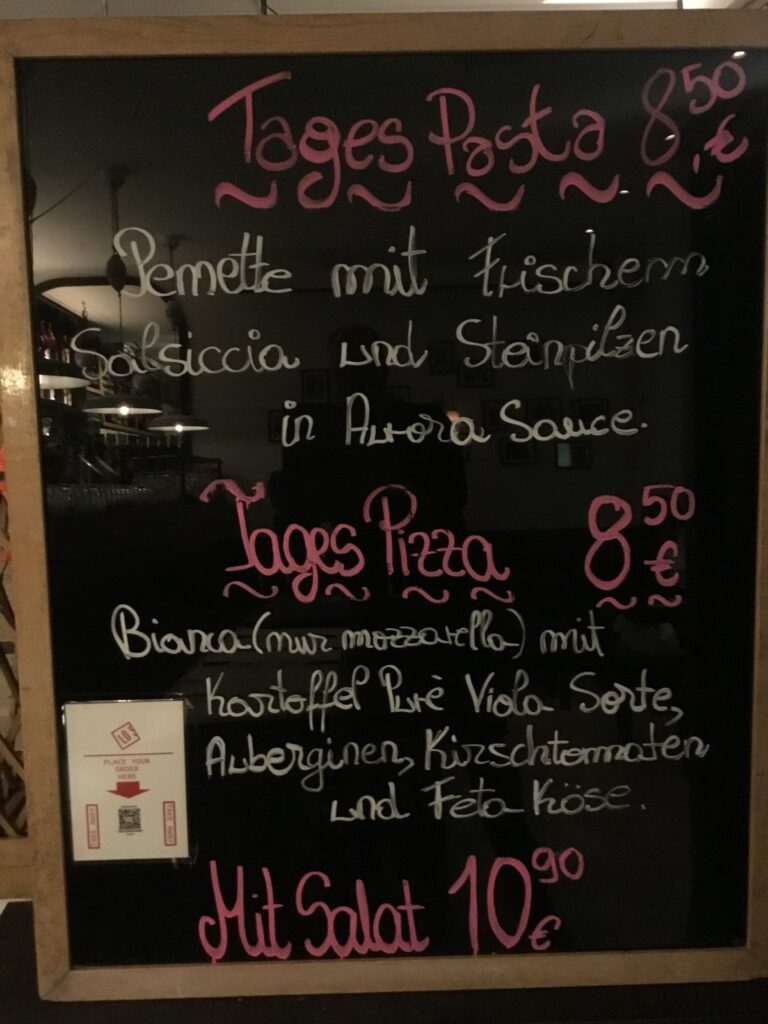 Tages Pasta 8,50 €
Pernette mit Frischem
Salsiccia und Steinpilzen
in Aurora Sauce.
Tages Pizza 8 50 €
Bianca (nur mozzarella) mit
Kartoffel Purè Viola Sorte,
Auberginen, Kirschtomaten
und Feta Käse.
PLACE YOUR
ORDER
HERE
TAKE AWAY
TAKE AWAY
Mit Salat 10 90 €